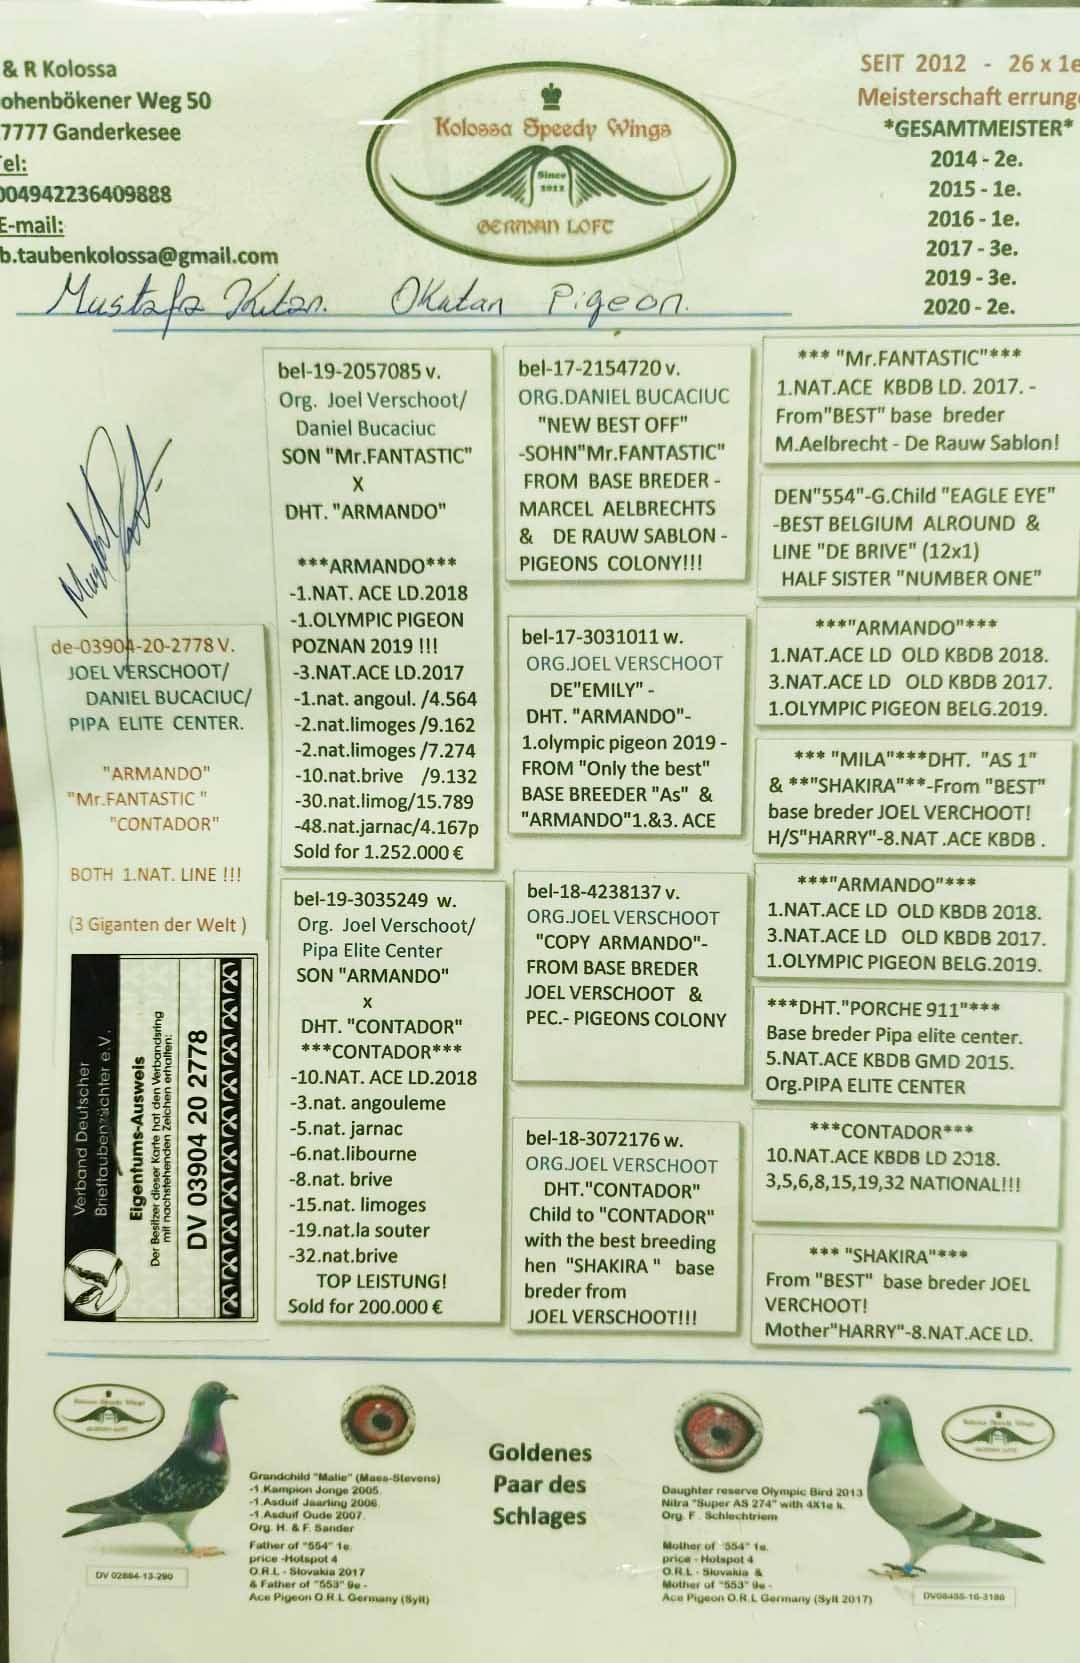 & R Kolossa
ohenbökener Weg 50
7777 Ganderkesee
Tel:
004942236409888
E-mail:
b.taubenkolossa@gmail.com
Kolossa Speedy Wings
Since
2012
GERMAN LOFT
SEIT 2012 - 26 x 1e
Meisterschaft errunge
*GESAMTMEISTER*
2014 - 2e.
2015 - 1e.
2016 - 1e.
2017 - 3e.
2019 - 3e.
2020 - 2e.
Mustafa Okutan Pigeon.
de-03904-20-2778 V.
JOEL VERSCHOOT/
DANIEL BUCACIUC/
PIPA ELITE CENTER.
"ARMANDO"
"Mr.FANTASTIC "
"CONTADOR"
BOTH 1.NAT. LINE !!!
(3 Giganten der Welt )
Verband Deutscher
Brieftaubenzüchter e.V.
Eigentums-Ausweis
Der Besitzer dieser Karte hat den Verbandsring
mit nachstehenden Zeichen erhalten:
DV 03904 20 2778
bel-19-2057085 v.
Org. Joel Verschoot/
Daniel Bucaciuc
SON "Mr.FANTASTIC"
X
DHT. "ARMANDO"
***ARMANDO***
-1.NAT. ACE LD.2018
-1.OLYMPIC PIGEON
POZNAN 2019 !!!
-3.NAT.ACE LD.2017
-1.nat. angoul. /4.564
-2.nat.limoges /9.162
-2.nat.limoges /7.274
-10.nat.brive /9.132
-30.nat.limog/15.789
-48.nat.jarnac/4.167p
Sold for 1.252.000 €
bel-19-3035249 w.
Org. Joel Verschoot/
Pipa Elite Center
SON "ARMANDO"
x
DHT. "CONTADOR"
***CONTADOR***
-10.NAT. ACE LD.2018
-3.nat. angouleme
-5.nat. jarnac
-6.nat.libourne
-8.nat. brive
-15.nat. limoges
-19.nat.la souter
-32.nat.brive
TOP LEISTUNG!
Sold for 200.000 €
bel-17-2154720 v.
ORG.DANIEL BUCACIUC
"NEW BEST OFF"
-SOHN"Mr.FANTASTIC"
FROM BASE BREDER -
MARCEL AELBRECHTS
& DE RAUW SABLON -
PIGEONS COLONY!!!
bel-17-3031011 w.
ORG.JOEL VERSCHOOT
DE"EMILY" -
DHT. "ARMANDO"-
1.olympic pigeon 2019 -
FROM "Only the best"
BASE BREEDER "As" &
"ARMANDO"1.&3. ACE
bel-18-4238137 v.
ORG.JOEL VERSCHOOT
"COPY ARMANDO"-
FROM BASE BREDER
JOEL VERSCHOOT &
PEC.- PIGEONS COLONY
bel-18-3072176 w.
ORG.JOEL VERSCHOOT
DHT."CONTADOR"
Child to "CONTADOR"
with the best breeding
hen "SHAKIRA " base
breder from
JOEL VERSCHOOT!!!
*** "Mr.FANTASTIC"***
1.NAT.ACE KBDB LD. 2017. -
From"BEST" base breder
M.Aelbrecht - De Rauw Sablon!
DEN"554"-G.Child "EAGLE EYE"
-BEST BELGIUM ALROUND &
LINE "DE BRIVE" (12x1)
HALF SISTER "NUMBER ONE"
***"ARMANDO"***
1.NAT.ACE LD OLD KBDB 2018.
3.NAT.ACE LD OLD KBDB 2017.
1.OLYMPIC PIGEON BELG.2019.
*** "MILA"***DHT. "AS 1"
& **"SHAKIRA"**-From "BEST"
base breder JOEL VERCHOOT!
H/S"HARRY"-8.NAT .ACE KBDB .
***"ARMANDO"***
1.NAT.ACE LD OLD KBDB 2018.
3.NAT.ACE LD OLD KBDB 2017.
1.OLYMPIC PIGEON BELG.2019.
***DHT."PORCHE 911"***
Base breder Pipa elite center.
5.NAT.ACE KBDB GMD 2015.
Org.PIPA ELITE CENTER
***CONTADOR***
10.NAT.ACE KBDB LD 2018.
3,5,6,8,15,19,32 NATIONAL!!!
*** "SHAKIRA"***
From "BEST" base breder JOEL
VERCHOOT!
Mother"HARRY"-8.NAT.ACE LD.
Kolossa Speedy Wings
GERMAN LOFT
DV 02864-13-290
Grandchild "Malie" (Maes-Stevens)
-1.Kampion Jonge 2005.
-1.Asduif Jaarling 2006.
-1.Asduif Oude 2007.
Org. H. & F. Sander
Father of "554" 1e.
price -Hotspot 4
O.R.L - Slovakia 2017
& Father of "553" 9e -
Ace Pigeon O.R.L Germany (Sylt)
Goldenes
Paar des
Schlages
Daughter reserve Olympic Bird 2013
Nitra "Super AS 274" with 4X1e k.
Org. F . Schlechtriem
Mother of "554" 1e.
price - Hotspot 4
O.R.L - Slovakia &
Mother of "553" 9e -
Ace Pigeon O.R.L Germany (Sylt 2017)
Kolossa Speedy Wings
GERMAN LOFT
DV08455-10-3186